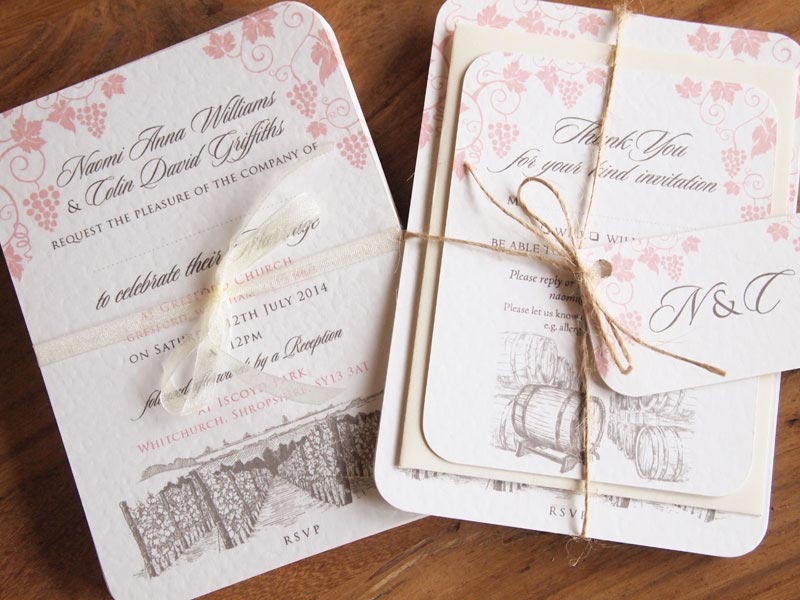 Naomi Anna Williams
& Colin David Griffiths
REQUEST THE PLEASURE OF THE COMPANY OF
to celebrate their
AT GRESFORD CHURCH
GRESFORD
ON 12TH JULY 2014
12PM
followed afterwards by a Reception
AT ISCOYD PARK
WHITCHURCH, SHROPSHIRE SY13 3AT
RSVP
Thank You
for your kind invitation
M
WILL
BE ABLE TO
Please reply or
naomi
Please let us know
e.g. aller
RSVP
N&C